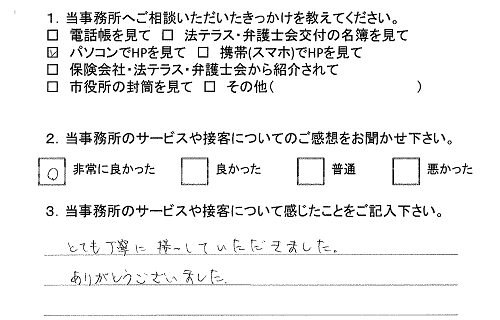 1. 当事務所へご相談いただいたきっかけを教えてください。
□ 電話帳を見て □ 法テラス・弁護士会交付の名簿を見て
☑ パソコンでHPを見て □ 携帯(スマホ)でHPを見て
□ 保険会社・法テラス・弁護士会から紹介されて
□ 市役所の封筒を見て □ その他( )
2. 当事務所のサービスや接客についてのご感想をお聞かせ下さい。
○ 非常に良かった □ 良かった □ 普通 □ 悪かった
3. 当事務所のサービスや接客について感じたことをご記入下さい。
とても丁寧に接していただきました。
ありがとうございました。